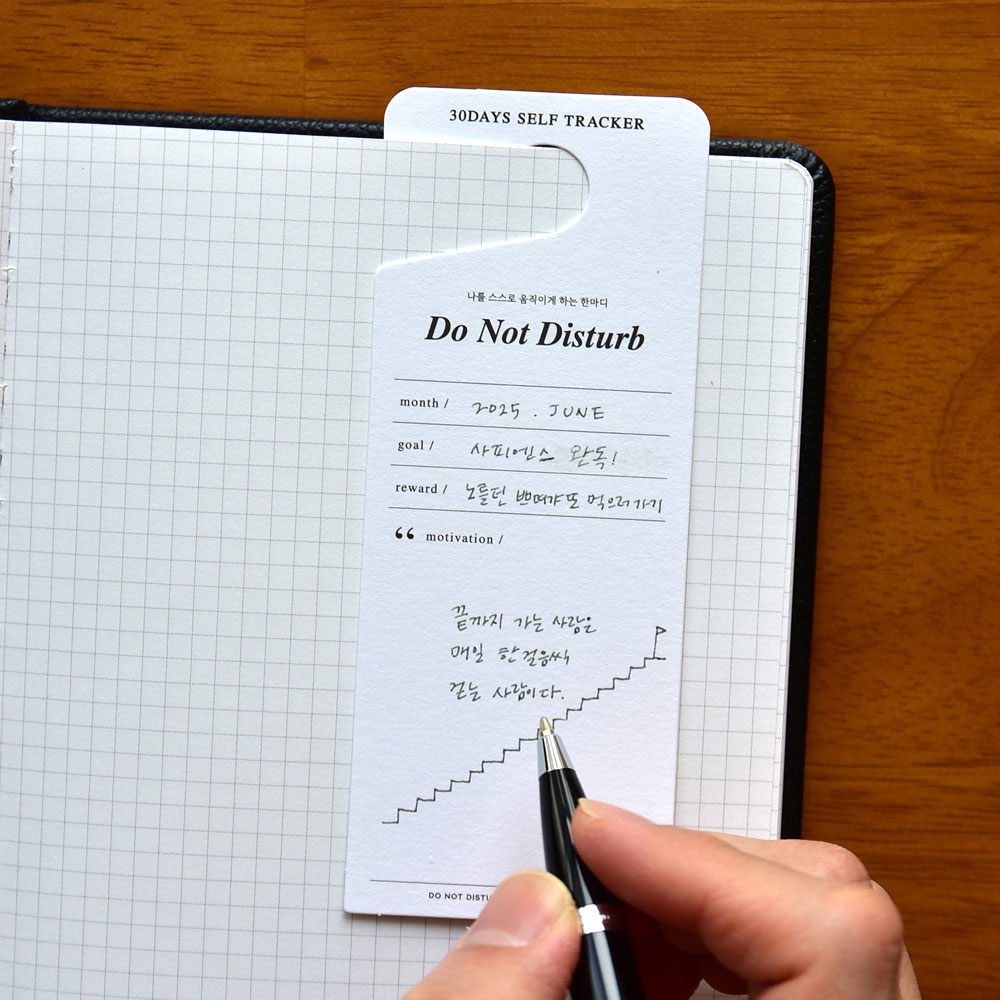 30DAYS SELF TRACKER
나를 스스로 움직이게 하는 한마디
Do Not Disturb
month / 2025 . JUNE
goal / 사피엔스 완독!
reward / 노틀던 쁘띠갸또 먹으러 가기
“ motivation /
끝까지 가는 사람은
매일 한걸음씩
걷는 사람이다.
DO NOT